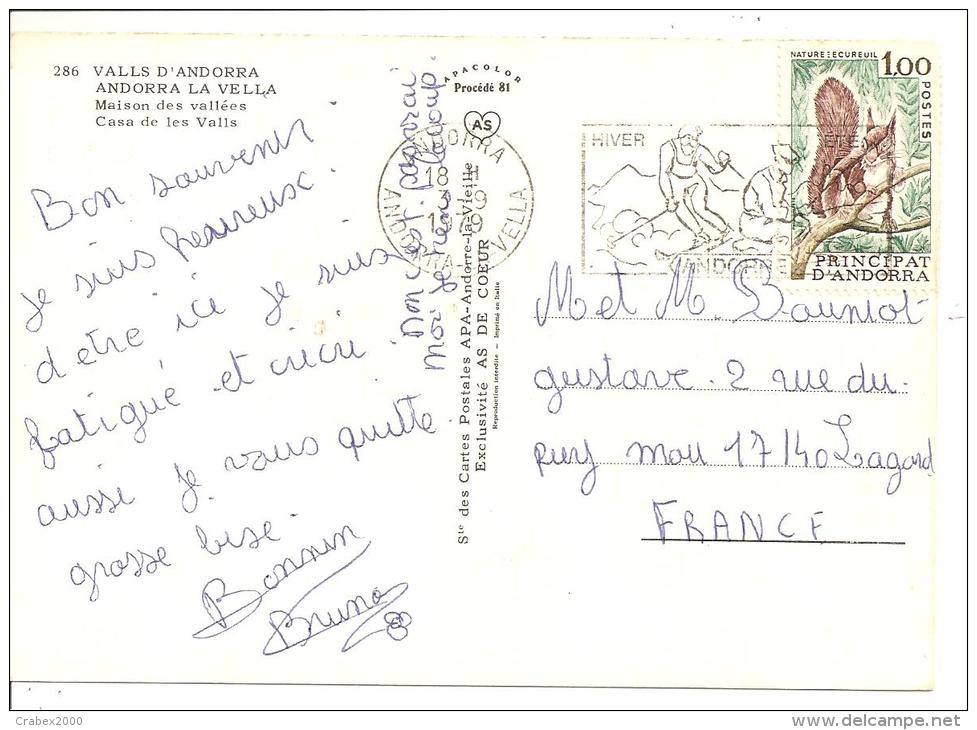 286 VALLS D'ANDORRA
ANDORRA LA VELLA
Maison des vallées
Casa de les Valls
APACOLOR
Procédé 81
AS
Bon souvenir
je suis heureuse.
d'etre ici je suis
fatigué et cricri
aussi je vous quitte
grosse bise.
Bonnin
Bruno
Non c'est pas vrai
moi je rens beaucoup.
Sté des Cartes Postales APA-Andorre-la-Vieille
Exclusivité AS DE COEUR
Reproduction interdite - Imprimé en Italie
ANDORRA
18 H
3-9
1979
ANDORRA-LA-VELLA
HIVER
ETE
ANDORRE
NATURE=ECUREUIL
1,00
POSTES
PRINCIPAT
D'ANDORRA
M et M. Bauniot
gustave. 2 rue du.
puy mou 17140 Lagord
FRANCE
Crabex2000
www.delcampe.net